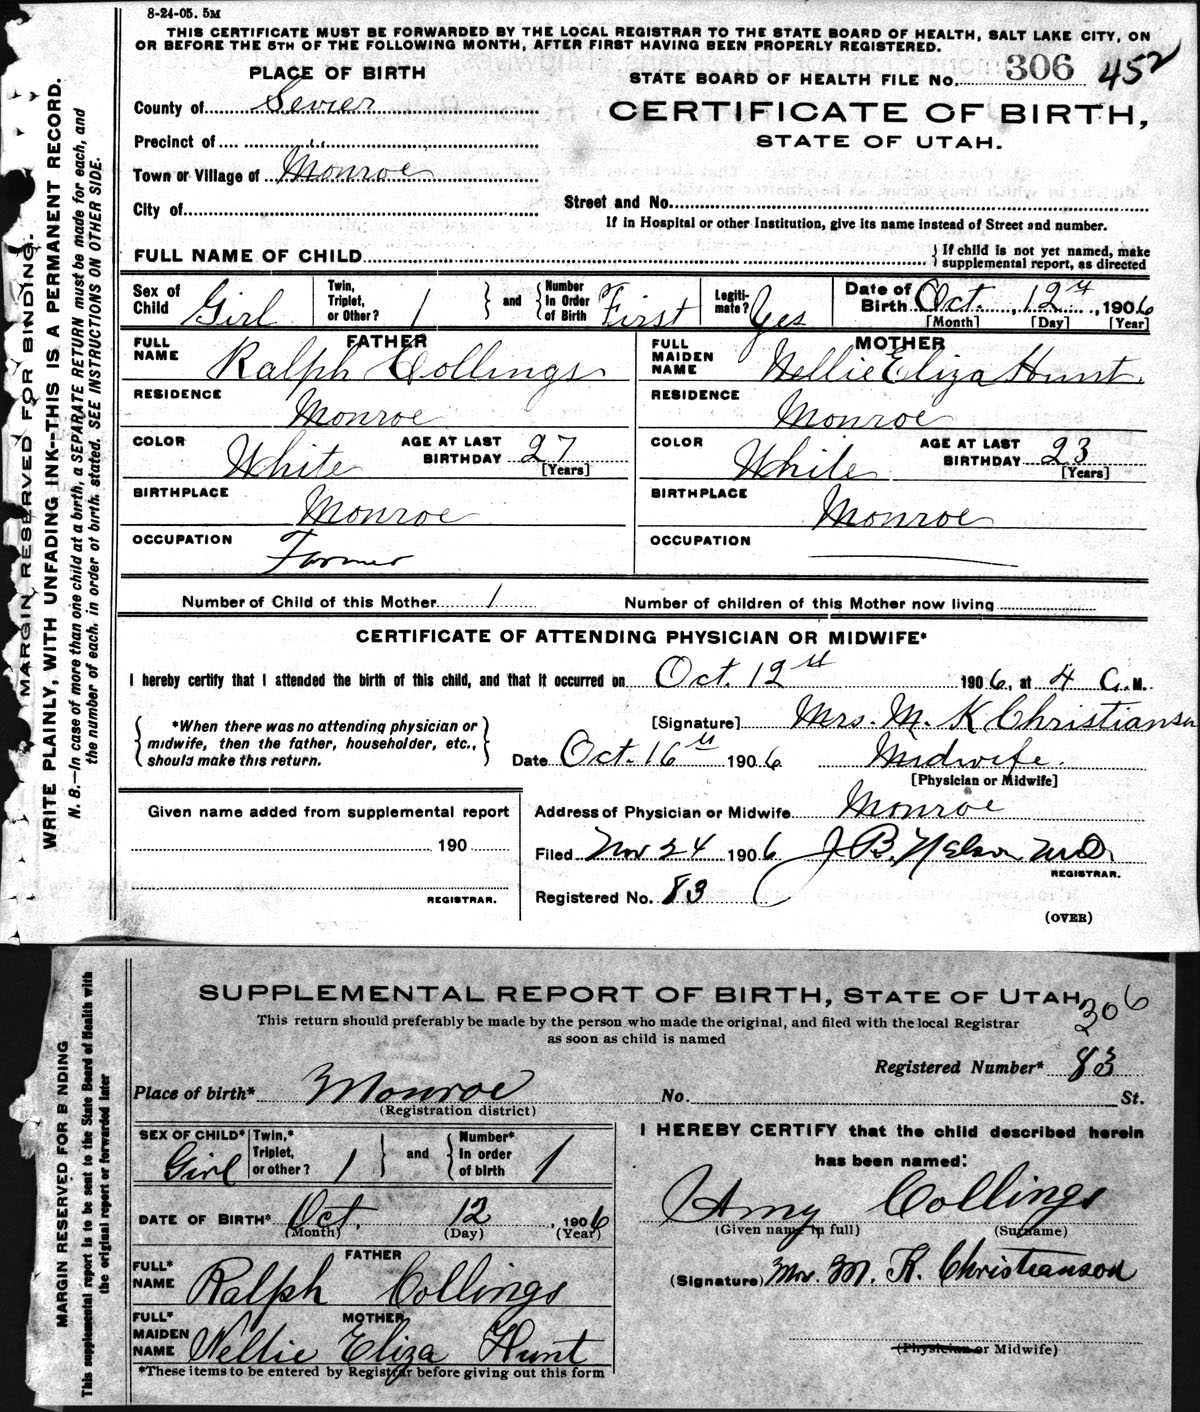 8-24-05. 5M
THIS CERTIFICATE MUST BE FORWARDED BY THE LOCAL REGISTRAR TO THE STATE BOARD OF HEALTH, SALT LAKE CITY, ON
OR BEFORE THE 5TH OF THE FOLLOWING MONTH, AFTER FIRST HAVING BEEN PROPERLY REGISTERED.
PLACE OF BIRTH
STATE BOARD OF HEALTH FILE No. 306 452
County of Sevier
CERTIFICATE OF BIRTH,
STATE OF UTAH.
Precinct of "
Town or Village of Monroe
City of
Street and No.
If in Hospital or other Institution, give its name instead of Street and number.
FULL NAME OF CHILD
If child is not yet named, make
supplemental report, as directed
Sex of Child Girl
Twin, Triplet, or Other? 1
and
Number In Order of Birth First
Legiti-mate? Yes
Date of Birth Oct. 12th, 1906
[Month] [Day] [Year]
FATHER
FULL NAME Ralph Collings
RESIDENCE Monroe
COLOR White
AGE AT LAST BIRTHDAY 27
[Years]
BIRTHPLACE Monroe
OCCUPATION Farmer
MOTHER
FULL MAIDEN NAME Nellie Eliza Hunt.
RESIDENCE Monroe
COLOR White
AGE AT LAST BIRTHDAY 23
[Years]
BIRTHPLACE Monroe
OCCUPATION
Number of Child of this Mother 1
Number of children of this Mother now living
CERTIFICATE OF ATTENDING PHYSICIAN OR MIDWIFE*
I hereby certify that I attended the birth of this child, and that it occurred on Oct. 12th 1906, at 4 a.M.
*When there was no attending physician or
midwife, then the father, householder, etc.,
should make this return.
[Signature] Mrs. M. K Christianson
Date Oct. 16th 1906 Midwife.
[Physician or Midwife]
Given name added from supplemental report
190
REGISTRAR.
Address of Physician or Midwife Monroe
Filed Nov 24 1906 J B. Nelson M.D.
REGISTRAR.
Registered No. 83
(OVER)
MARGIN RESERVED FOR BINDING.
WRITE PLAINLY, WITH UNFADING INK--THIS IS A PERMANENT RECORD.
N. B.—In case of more than one child at a birth, a SEPARATE RETURN must be made for each, and
the number of each, in order of birth, stated. SEE INSTRUCTIONS ON OTHER SIDE.
SUPPLEMENTAL REPORT OF BIRTH, STATE OF UTAH
306
This return should preferably be made by the person who made the original, and filed with the local Registrar
as soon as child is named
Registered Number* 83
Place of birth* Monroe No. St.
(Registration district)
SEX OF CHILD* Girl
Twin,* Triplet, or other? 1
and
Number* In order of birth 1
DATE OF BIRTH* Oct. 12, 1906
(Month) (Day) (Year)
FATHER
FULL* NAME Ralph Collings
MOTHER
FULL* MAIDEN NAME Nellie Eliza Hunt
*These items to be entered by Registrar before giving out this form
I HEREBY CERTIFY that the child described herein
has been named:
Amy Collings
(Given name in full) (Surname)
(Signature) Mrs. M. K. Christianson
(Physician or Midwife)
MARGIN RESERVED FOR B NDING
This supplemental report is to be sent to the State Board of Health with
the original report or forwarded later